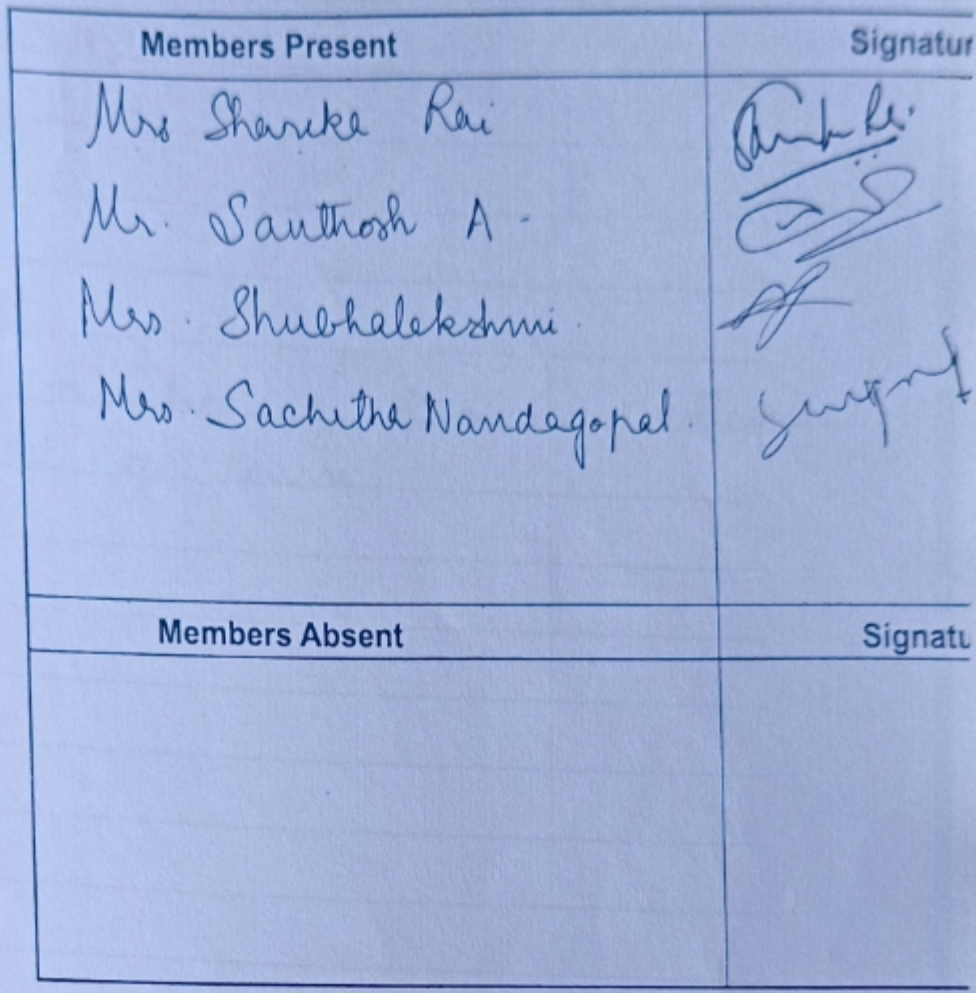 Members Present Signatur
Mrs Sharika Rai
Mr. Santhosh A.
Mrs. Shubhalekshmi.
Mrs. Sachitha Nandagopal.
Members Absent Signatu